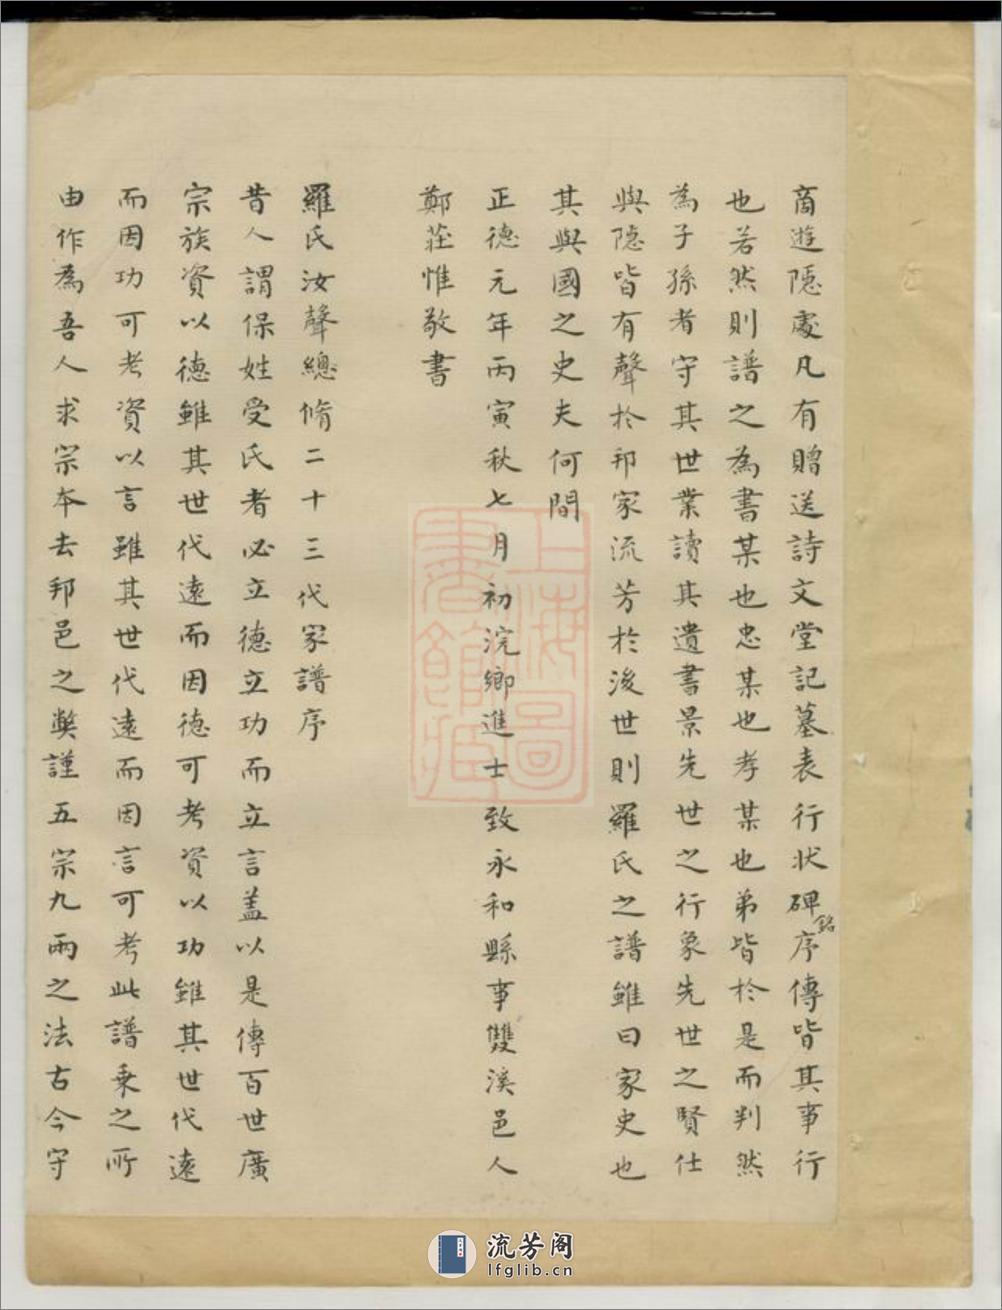 商遊隱處凡有贈送詩文堂記墓表行狀碑銘序傳皆其事行
也若然則譜之為書某也忠某也孝某也弟皆於是而判然
為子孫者守其世業讀其遺書景先世之行象先世之賢仕
與隱皆有聲於邦家流芳於後世則羅氏之譜雖曰家史也
其與國之史夫何間
正德元年丙寅秋七月初浣鄉進士致永和縣事雙溪邑人
鄭莊惟敬書
羅氏汝聲總脩二十三代家譜序
昔人謂保姓受氏者必立德立功而立言盖以是傳百世廣
宗族資以德雖其世代遠而因德可考資以功雖其世代遠
而因功可考資以言雖其世代遠而因言可考此譜乘之所
由作為吾人求宗本去邦邑之獘謹五宗九兩之法古今守
上海圖書館藏
流芳阁
lfglib.cn